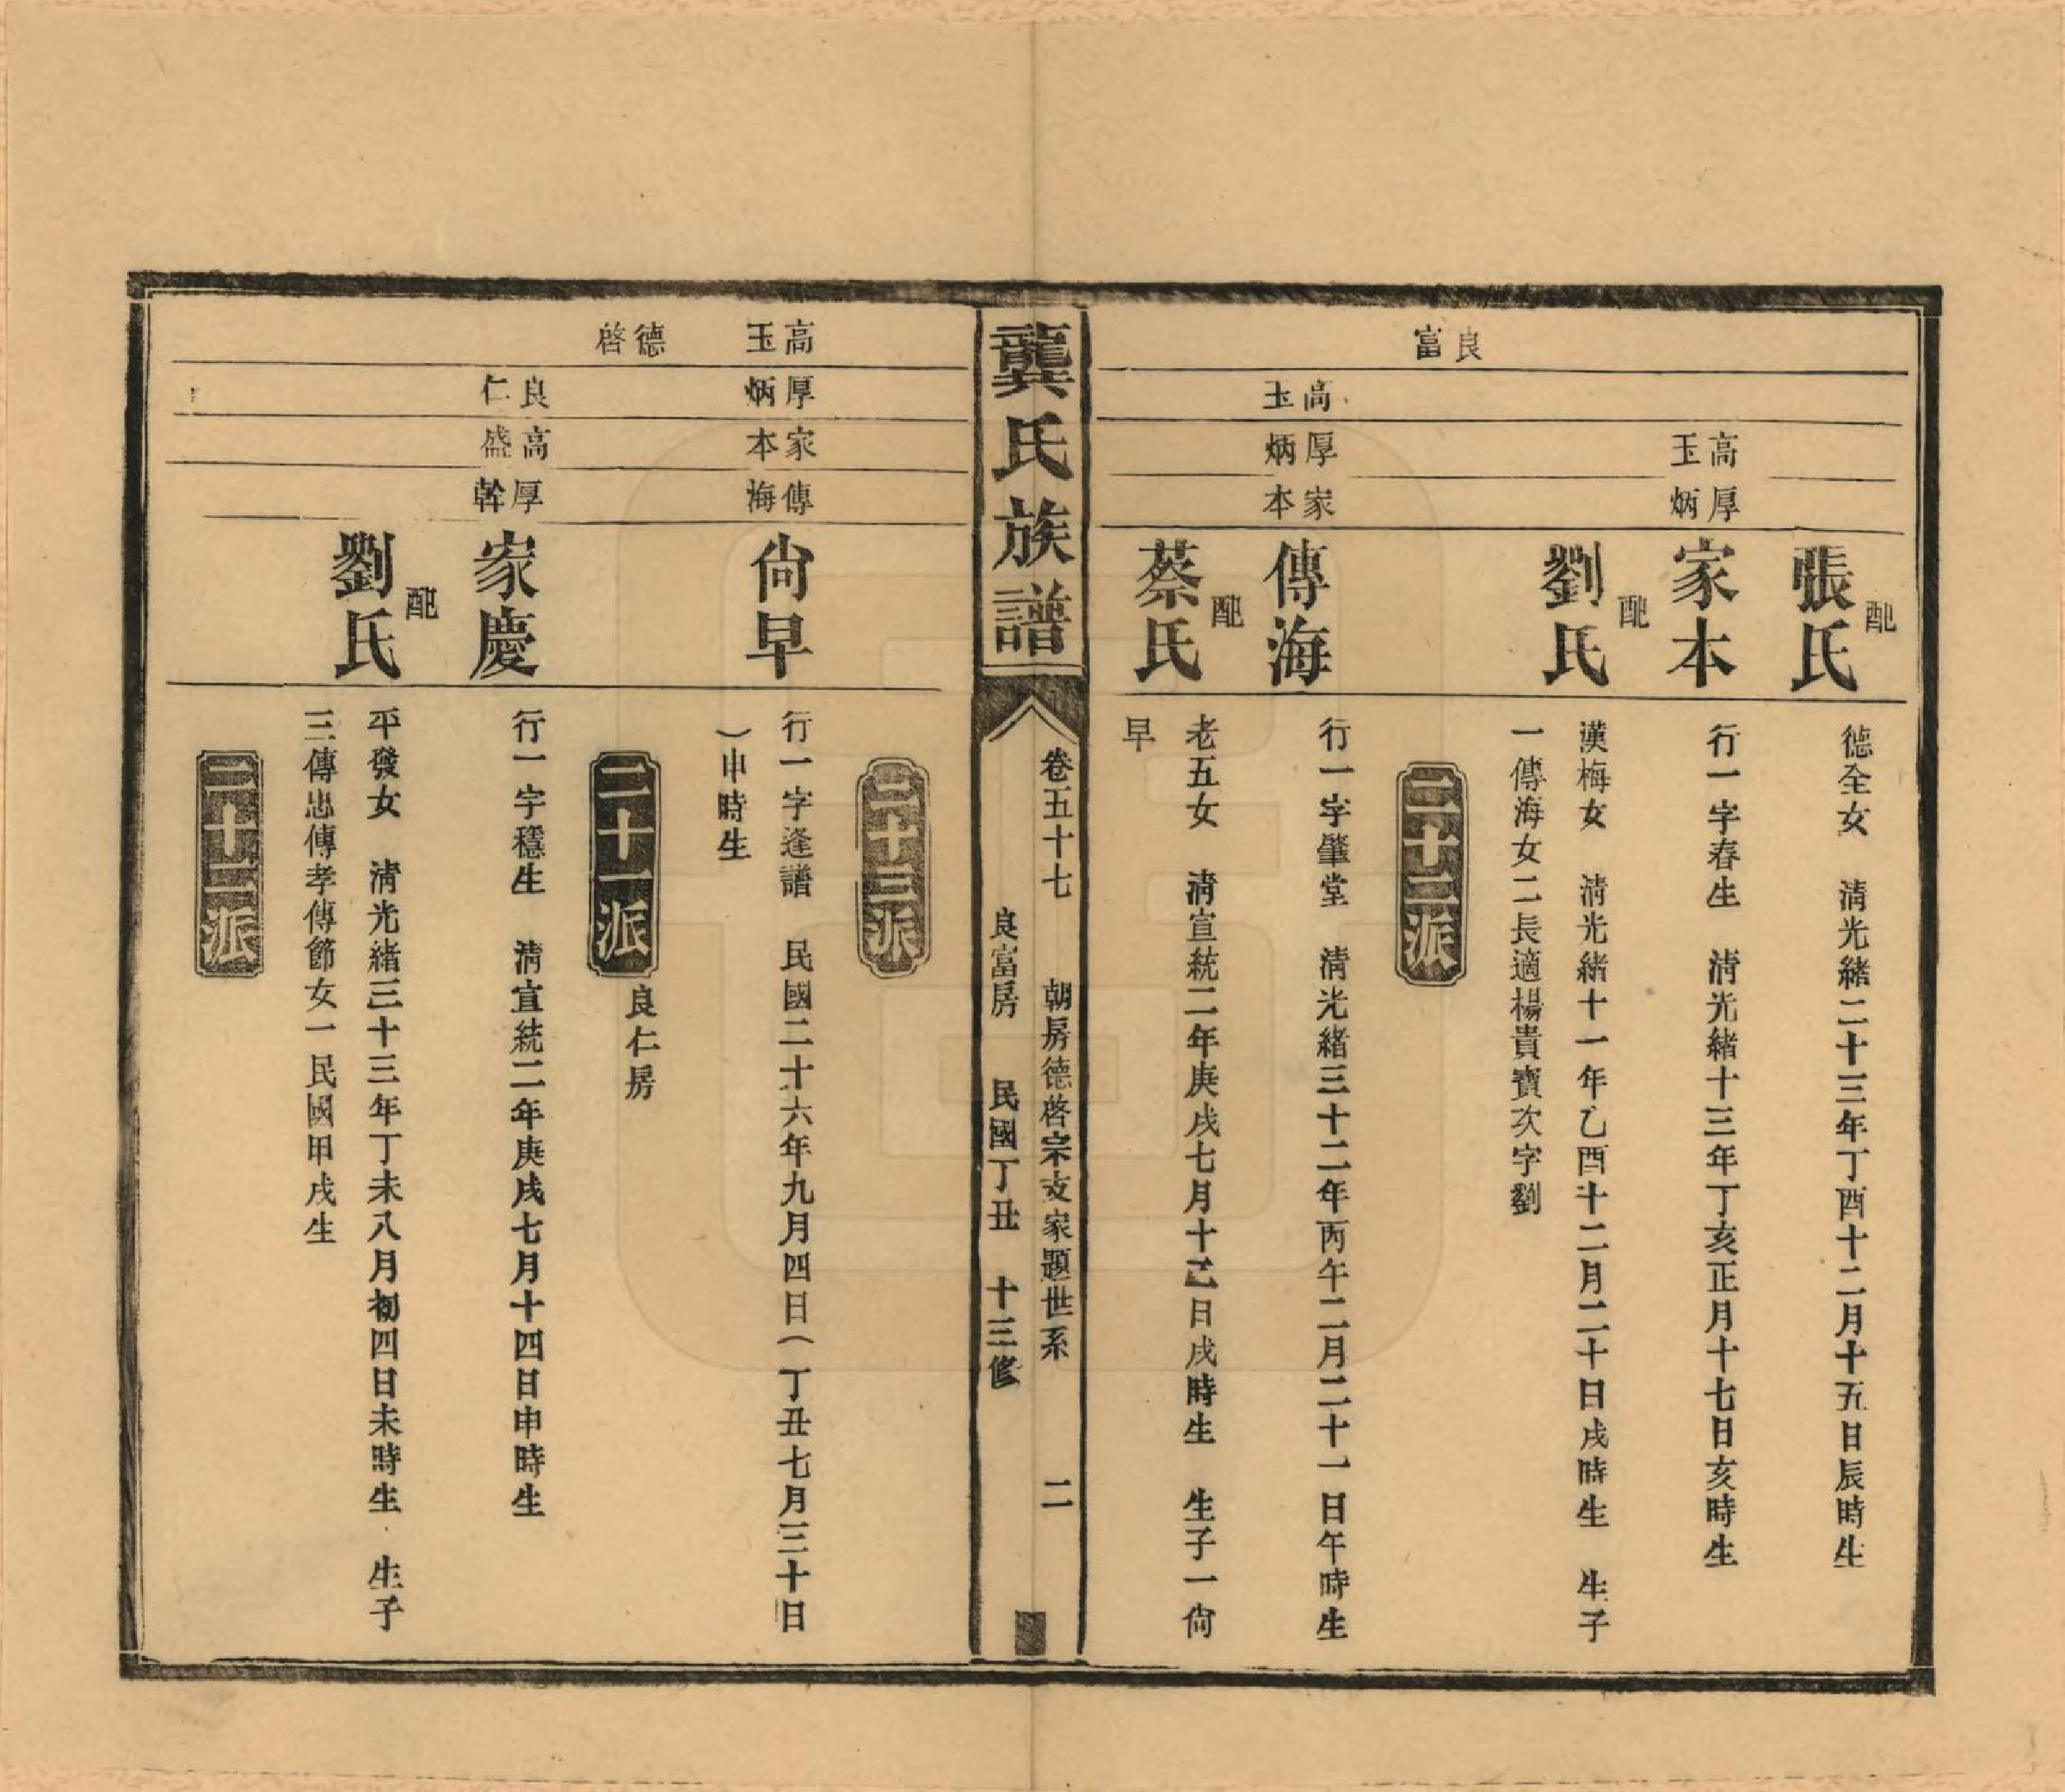 良富
高玉
厚炳
配
張氏
德全女　清光緒二十三年丁酉十二月十五日辰時生
家本
行一字春生　清光緒十三年丁亥正月十七日亥時生
配
劉氏
漢梅女　清光緒十一年乙酉十二月二十日戌時生　生子
一傳海女二長適楊貴寶次字劉
二十二派
高玉
厚炳
家本
傳海
行一字肇堂　清光緒三十二年丙午二月二十一日午時生
配
蔡氏
老五女　清宣統二年庚戌七月十乙日戌時生　生子一尙
早
龔氏族譜
卷五十七　朝房德啓宗支家題世系　二
良富房　民國丁丑　十三修
二十三派
高玉
厚炳
家本
傳海
尙早
行一字逢譜　民國二十六年九月四日（丁丑七月三十日
）申時生
二十一派
良仁房
德啓
良仁
高盛
厚幹
家慶
行一字穩生　清宣統二年庚戌七月十四日申時生
配
劉氏
平發女　清光緒三十三年丁未八月初四日未時生　生子
三傳忠傳孝傳節女一民國甲戌生
二十二派